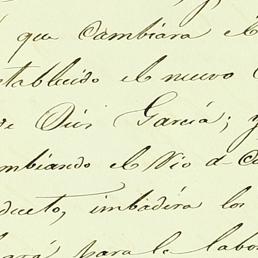 que cambiara el
establecido el nuevo
de Dios García; y
mbiando el Rio d
ducto, imbadira los
para la labo